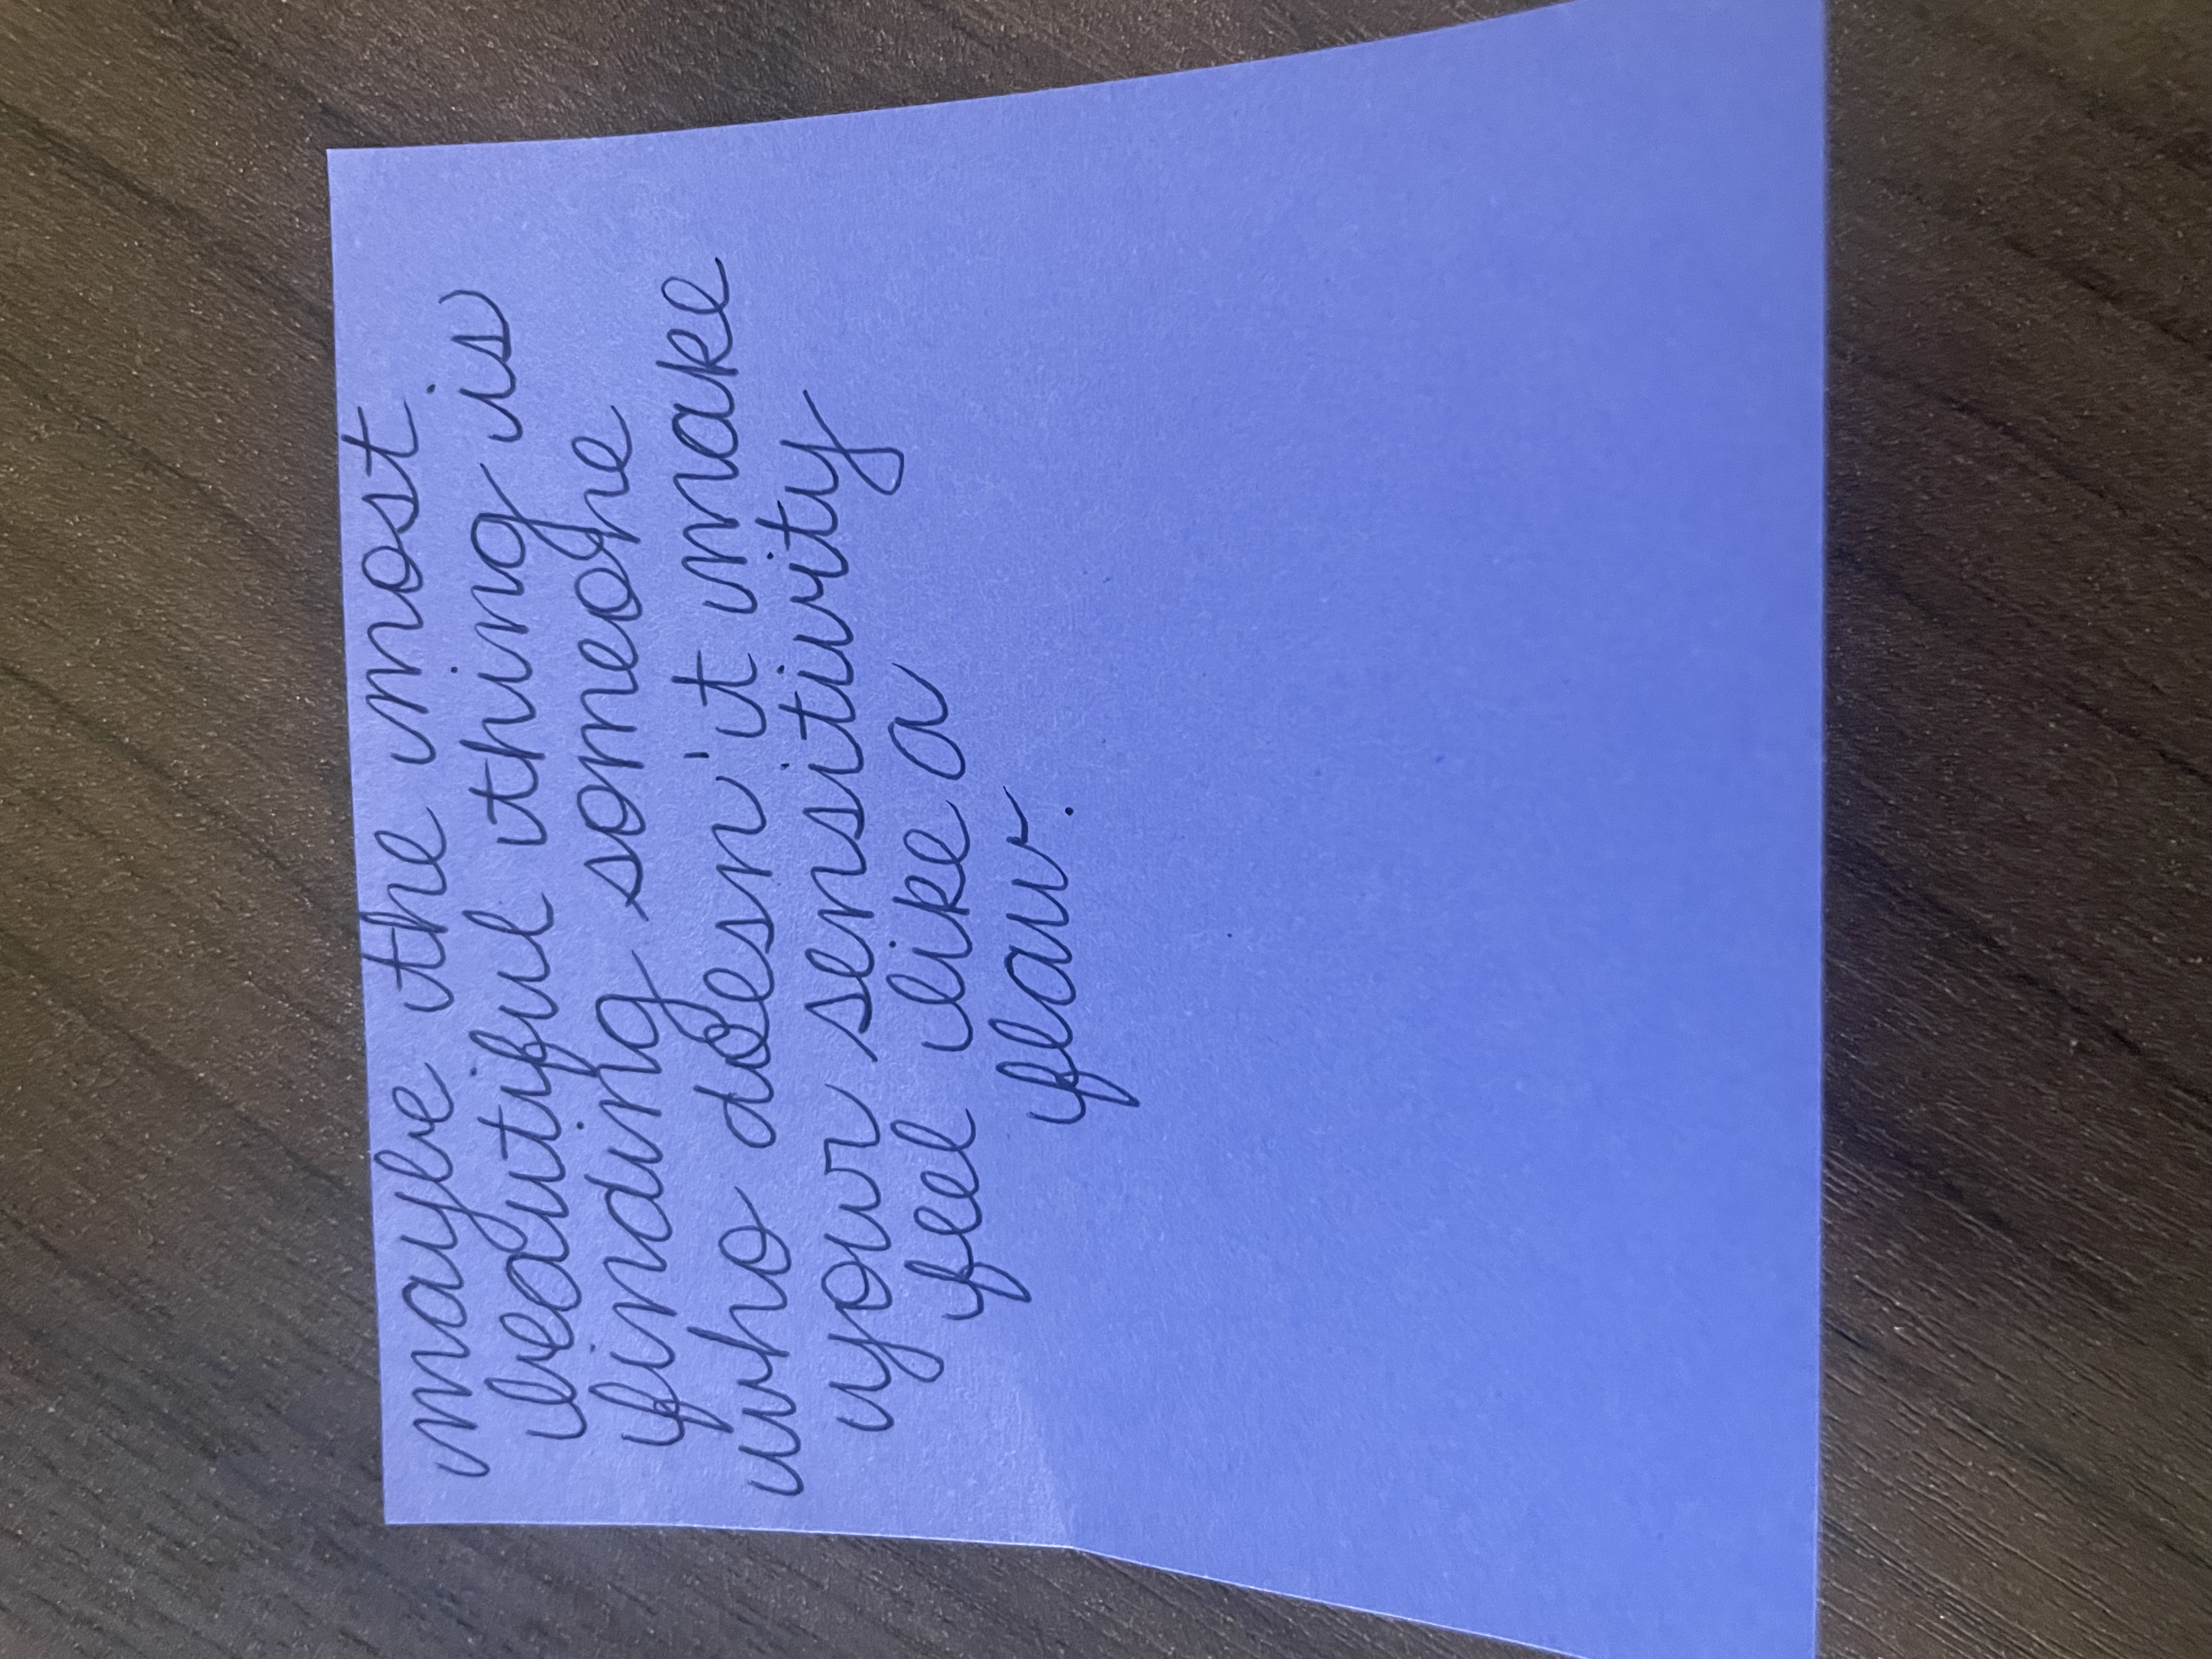 maybe the most
beautiful thing is
finding someone
who doesn't make
your sensitivity
feel like a
flaw.